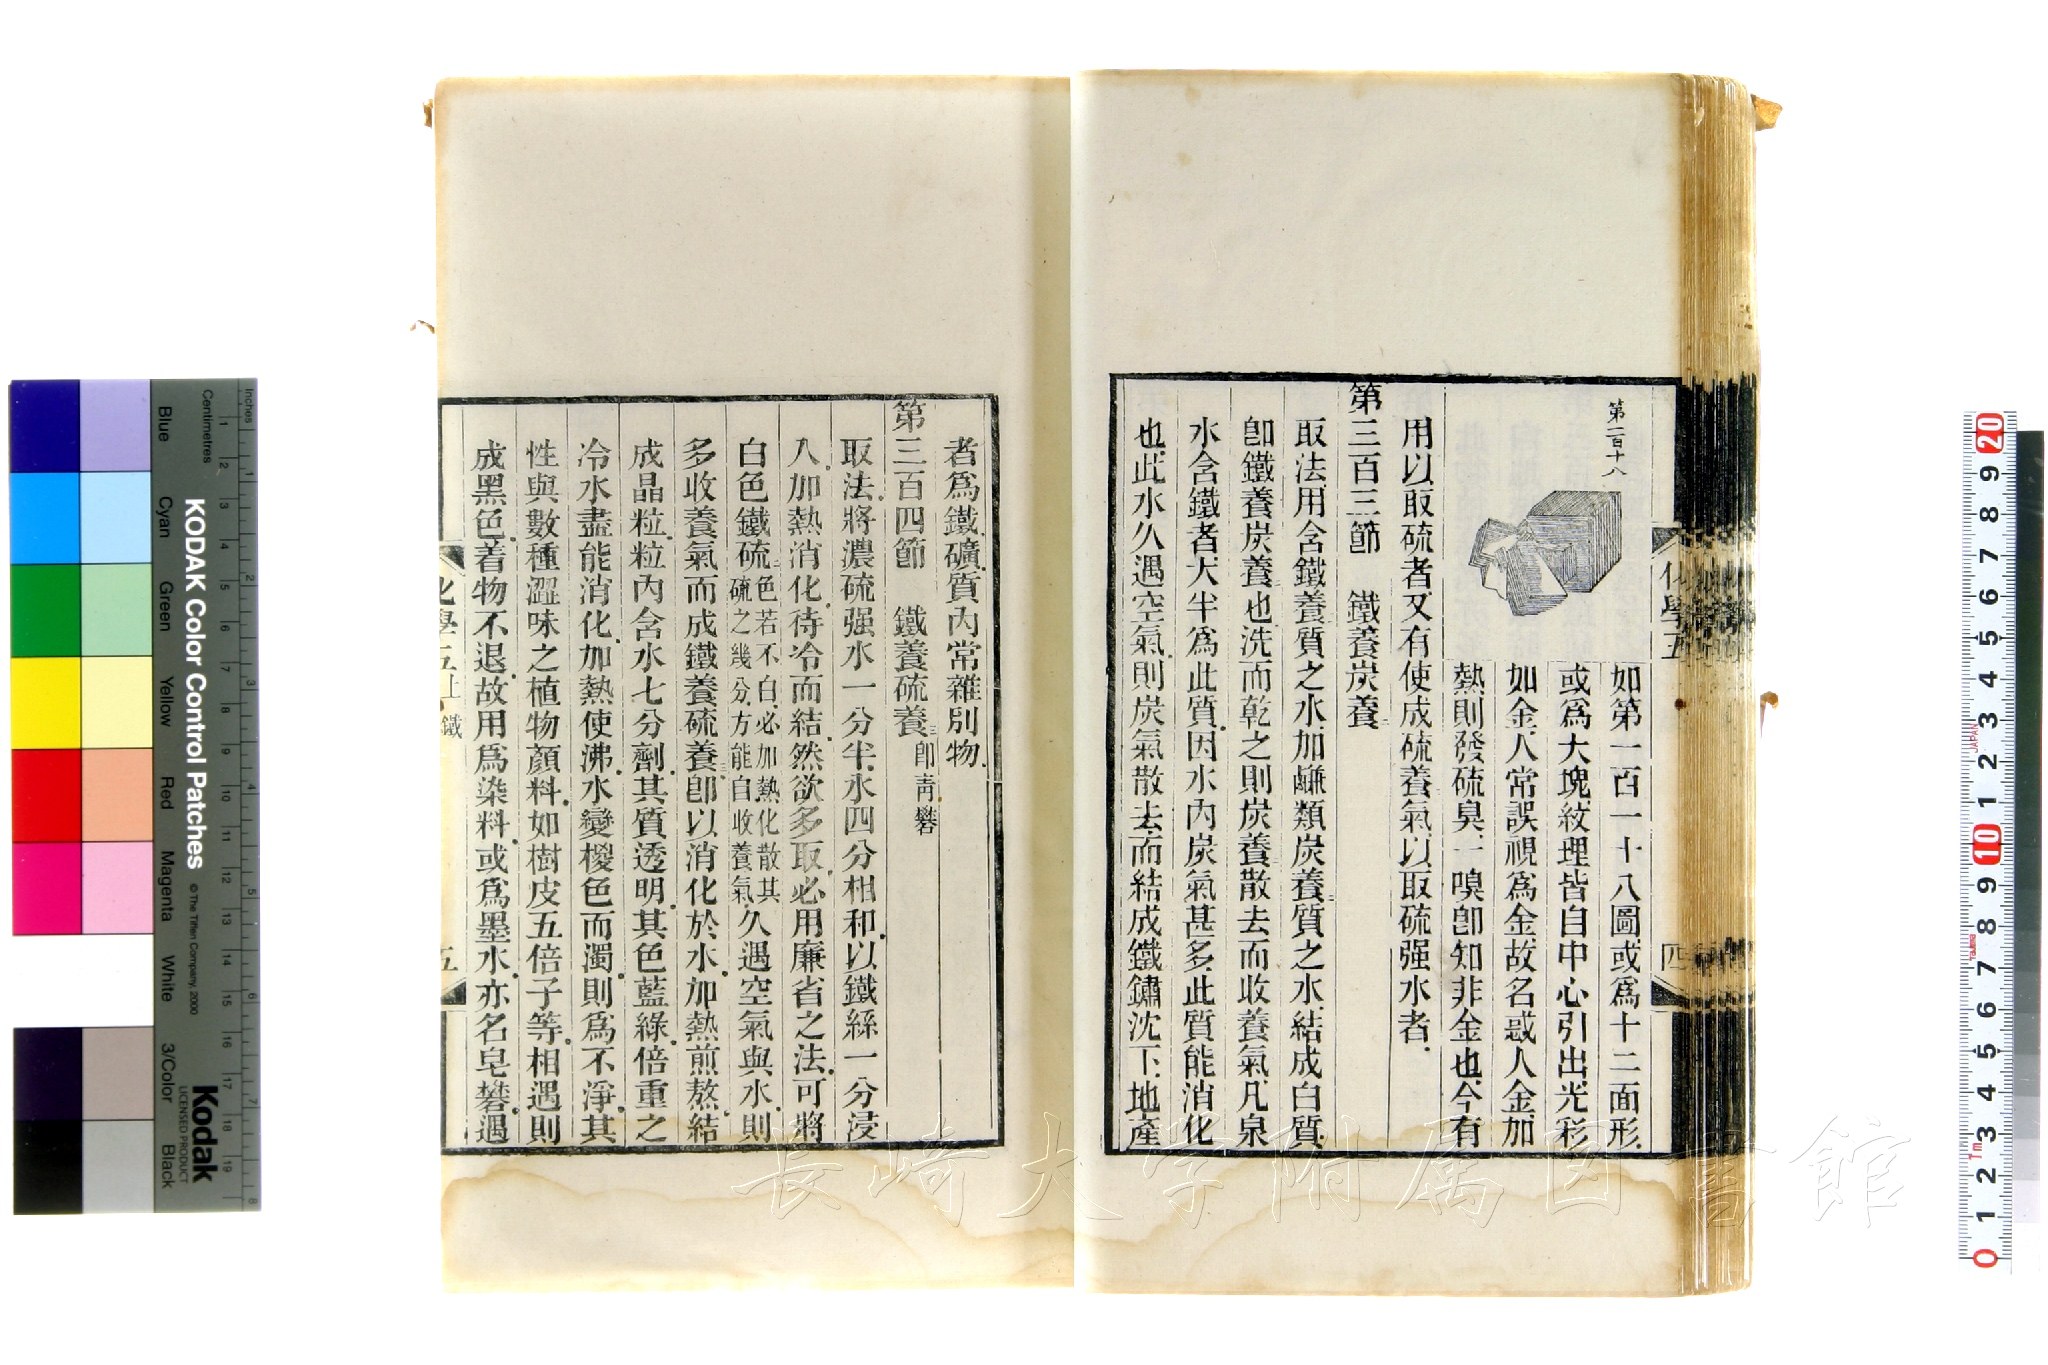 第一百十八
如第一百一十八圖或爲十二面形
或爲大塊紋理皆自中心引出光彩
如金人常誤視爲金故名惑人金加
熱則發硫臭一嗅卽知非金也今有
用以取硫者又有使成硫養氣以取硫强水者
第三百三節　鐵養炭養二
取法用含鐵養質之水加鹻類炭養二質之水結成白質
卽鐵養炭養二也洗而乾之則炭養二散去而收養氣凡泉
水含鐵者大半爲此質因水內炭氣甚多此質能消化
也此水久遇空氣則炭氣散去而結成鐵鏽沈下地產
化學五
四
者爲鐵礦質內常雜別物
第三百四節　鐵養硫養三卽靑礬
取法將濃硫强水一分半水四分相和以鐵絲一分浸
入加熱消化待冷而結然欲多取必用廉省之法可將
白色鐵硫二色若不白必加熱化散其硫之幾分方能自收養氣久遇空氣與水則
多收養氣而成鐵養硫養三卽以消化於水加熱煎熬結
成晶粒粒內含水七分劑其質透明其色藍綠倍重之
冷水盡能消化加熱使沸水變椶色而濁則爲不淨其
性與數種澀味之植物顏料如樹皮五倍子等相遇則
成黑色着物不退故用爲染料或爲墨水亦名皂礬遇
化學五上　鐵
五
長崎大学附属図書館
KODAK Color Control Patches
© The Tiffen Company, 2000
Kodak
LICENSED PRODUCT
Inches 1 2 3 4 5 6 7 8
Centimetres 1 2 3 4 5 6 7 8 9 10 11 12 13 14 15 16 17 18 19
Blue Cyan Green Yellow Red Magenta White 3/Color Black
20 9 8 7 6 5 4 3 2 1 10 9 8 7 6 5 4 3 2 1 0
JAPAN
1m